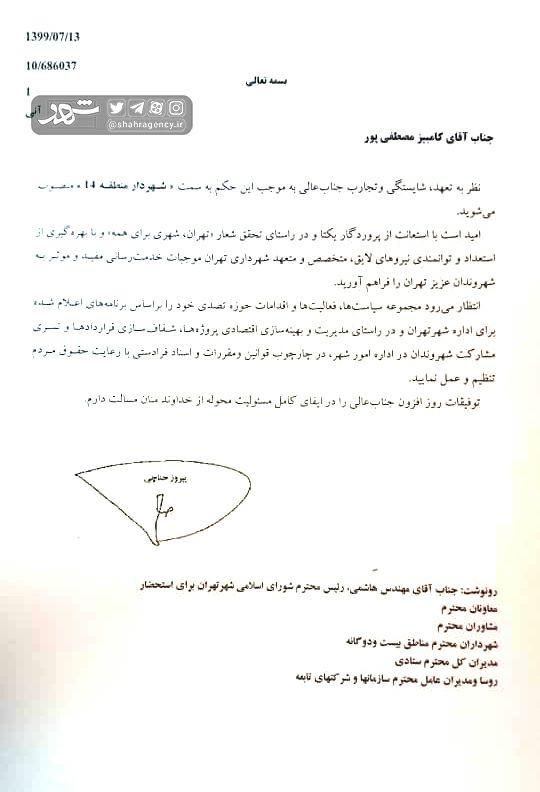 1399/07/13
10/686037
1
آنی
شهر
@shahragency.ir
بسمه تعالی
جناب آقای کامبیز مصطفی پور
نظر به تعهد، شایستگی وتجارب جناب‌عالی به موجب این حکم به سمت « شهردار منطقه 14 » منصوب
می‌شوید.
امید است با استعانت از پروردگار یکتا و در راستای تحقق شعار «تهران، شهری برای همه» و با بهره‌گیری از
استعداد و توانمندی نیروهای لایق، متخصص و متعهد شهرداری تهران موجبات خدمت‌رسانی مفید و موثر به
شهروندان عزیز تهران را فراهم آورید.
انتظار می‌رود مجموعه سیاست‌ها، فعالیت‌ها و اقدامات حوزه تصدی خود را براساس برنامه‌های اعلام شده
برای اداره شهرتهران و در راستای مدیریت و بهینه‌سازی اقتصادی پروژه‌ها، شفاف‌سازی قراردادها و تسری
مشارکت شهروندان در اداره امور شهر، در چارچوب قوانین ومقررات و اسناد فرادستی با رعایت حقوق مردم
تنظیم و عمل نمایید.
توفیقات روز افزون جناب‌عالی را در ایفای کامل مسئولیت محوله از خداوند منان مسالت دارم.
پیروز حناچی
رونوشت: جناب آقای مهندس هاشمی، رئیس محترم شورای اسلامی شهرتهران برای استحضار
معاونان محترم
مشاوران محترم
شهرداران محترم مناطق بیست ودوگانه
مدیران کل محترم ستادی
روسا ومدیران عامل محترم سازمانها و شرکتهای تابعه